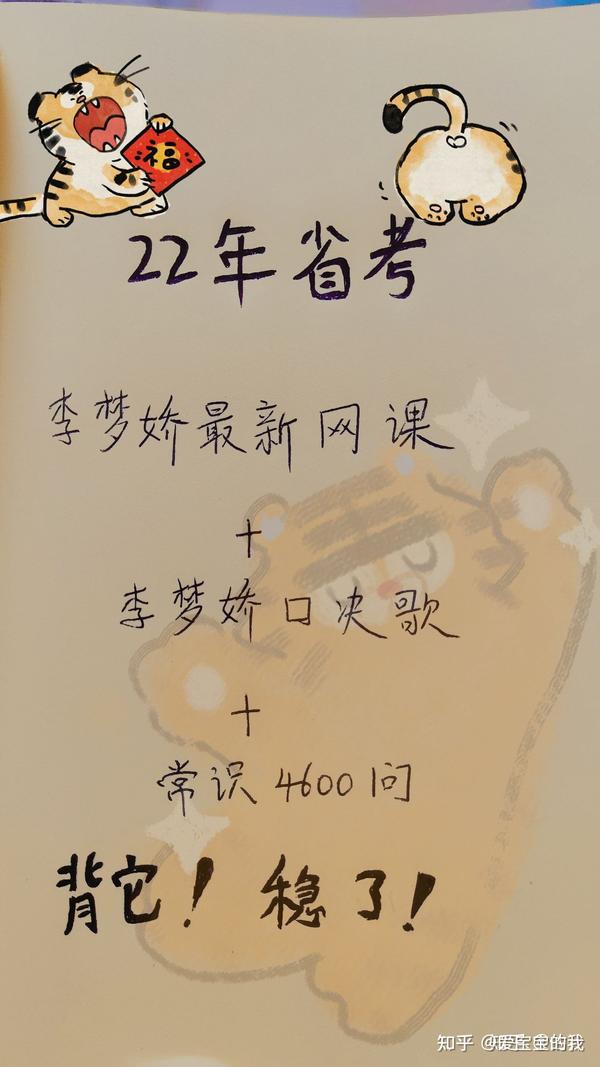 福
22年省考
李梦娇最新网课
+
李梦娇口决歌
+
常识4600问
背它！稳了！
知乎 @爱宝宝的我